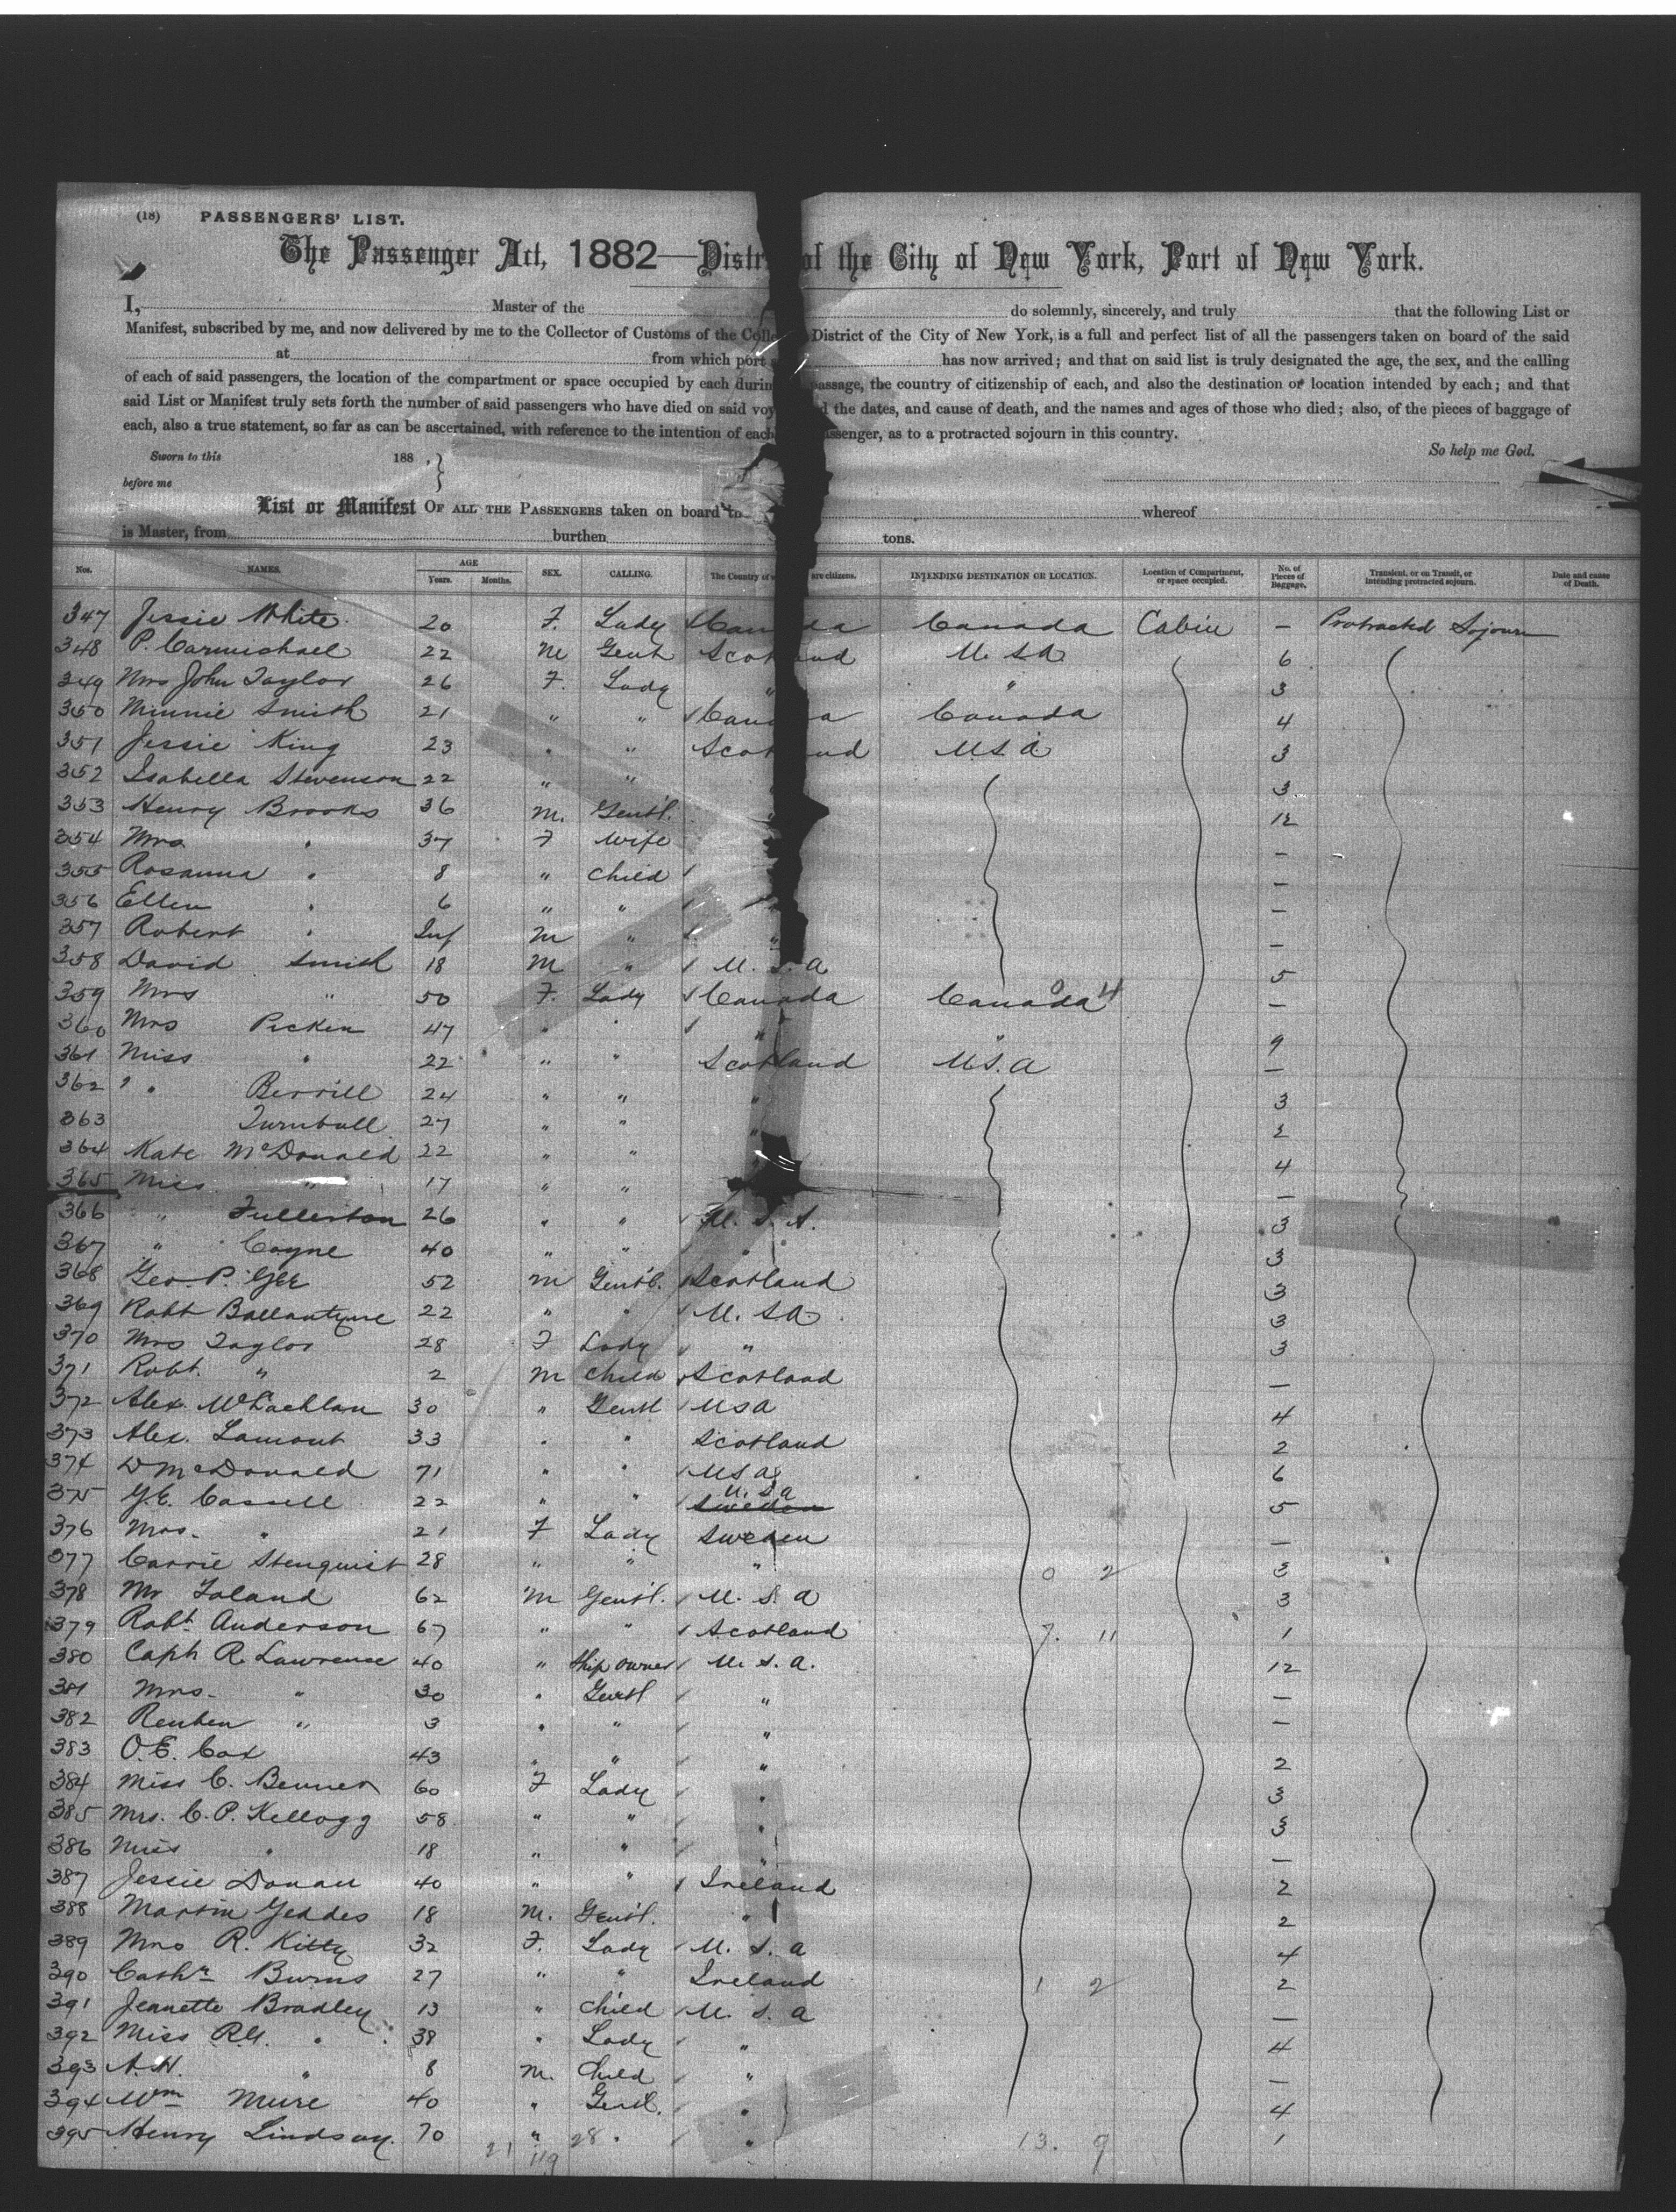 (18) PASSENGERS' LIST.
The Passenger Act, 1882—Distr of the City of New York, Port of New York.
I, Master of the do solemnly, sincerely, and truly that the following List or
Manifest, subscribed by me, and now delivered by me to the Collector of Customs of the Colle District of the City of New York, is a full and perfect list of all the passengers taken on board of the said
at from which port has now arrived; and that on said list is truly designated the age, the sex, and the calling
of each of said passengers, the location of the compartment or space occupied by each durin passage, the country of citizenship of each, and also the destination or location intended by each; and that
said List or Manifest truly sets forth the number of said passengers who have died on said voy d the dates, and cause of death, and the names and ages of those who died; also, of the pieces of baggage of
each, also a true statement, so far as can be ascertained, with reference to the intention of each ssenger, as to a protracted sojourn in this country.
So help me God.
Sworn to this 188 .
before me
List or Manifest OF ALL THE PASSENGERS taken on board whereof
is Master, from burthen tons.
Nos. NAMES. AGE Years. Months. SEX. CALLING. The Country of are citizens. INTENDING DESTINATION OR LOCATION. Location of Compartment, or space occupied. No. of Pieces of Baggage. Transient, or on Transit, or intending protracted sojourn. Date and cause of Death.
347 Jessie White 20 F. Lady Canada Canada Cabin — Protracted Sojourn
348 P. Carmichael 22 M Gent Scotland U.S.A 6
349 Mrs John Taylor 26 F. Lady " " 3
350 Minnie Smith 21 " " Cana a Canada 4
351 Jessie King 23 " " Scot and U.S.A 3
352 Isabella Stevenson 22 " " 3
353 Henry Brooks 36 M. Gentl. " 12
354 Mrs " 37 F Wife —
355 Rosanna " 8 " Child —
356 Ellen " 6 " " " —
357 Robert " Inf M " " —
358 David Smith 18 M " U.S.A 5
359 Mrs " 50 F. Lady Canada Canada 0 4 —
360 Mrs Picken 47 " " " " 9
361 Miss " 22 " " Scotland U.S.A —
362 " Berrill 24 " " " 3
363 Turnbull 27 " " " 2
364 Kate McDonald 22 " " " 4
365 Miss " 17 " " —
366 " Fullerton 26 " " U.S.A. 3
367 " Coyne 40 " " " 3
368 Geo. P. Gee 52 M Gentl. Scotland 3
369 Robt Ballantyne 22 " " U.S.A. 3
370 Mrs Taylor 28 F Lady " 3
371 Robt. " 2 M Child Scotland —
372 Alex. McLachlan 30 " Gentl U S A 4
373 Alex. Lamont 33 " " Scotland 2
374 D McDonald 71 " " U S A 6
375 G.E. Cassell 22 " " Sweden U.S.A 5
376 Mrs. " 21 F Lady Sweden —
377 Carrie Stenquist 28 " " " 0 2 3
378 Mr Toland 62 M Gentl. U.S.A 3
379 Robt Anderson 67 " " Scotland 7. 11 1
380 Capt R. Lawrence 40 " Ship owner U.S.A. 12
381 Mrs. " 30 " Gentl " —
382 Reuben " 3 " " " —
383 O.E. Cox 43 " " " 2
384 Miss C. Benner 60 F Lady " 3
385 Mrs. C.P. Kellogg 58 " " " 3
386 Miss " 18 " " " —
387 Jessie Donan 40 " " Ireland 2
388 Martin Geddes 18 M. Gentl. " 2
389 Mrs R. Kitty 32 F. Lady U.S.A 4
390 Cathr Burns 27 " " Ireland 1 2 2
391 Jeanette Bradley 13 " Child U.S.A —
392 Miss R.G. " 38 " Lady " 4
393 A.H. " 8 M. Child " —
394 Wm Muire 40 " Gentl. " 4
395 Henry Lindsay. 70 " " " 1
21 119 28 13. 9